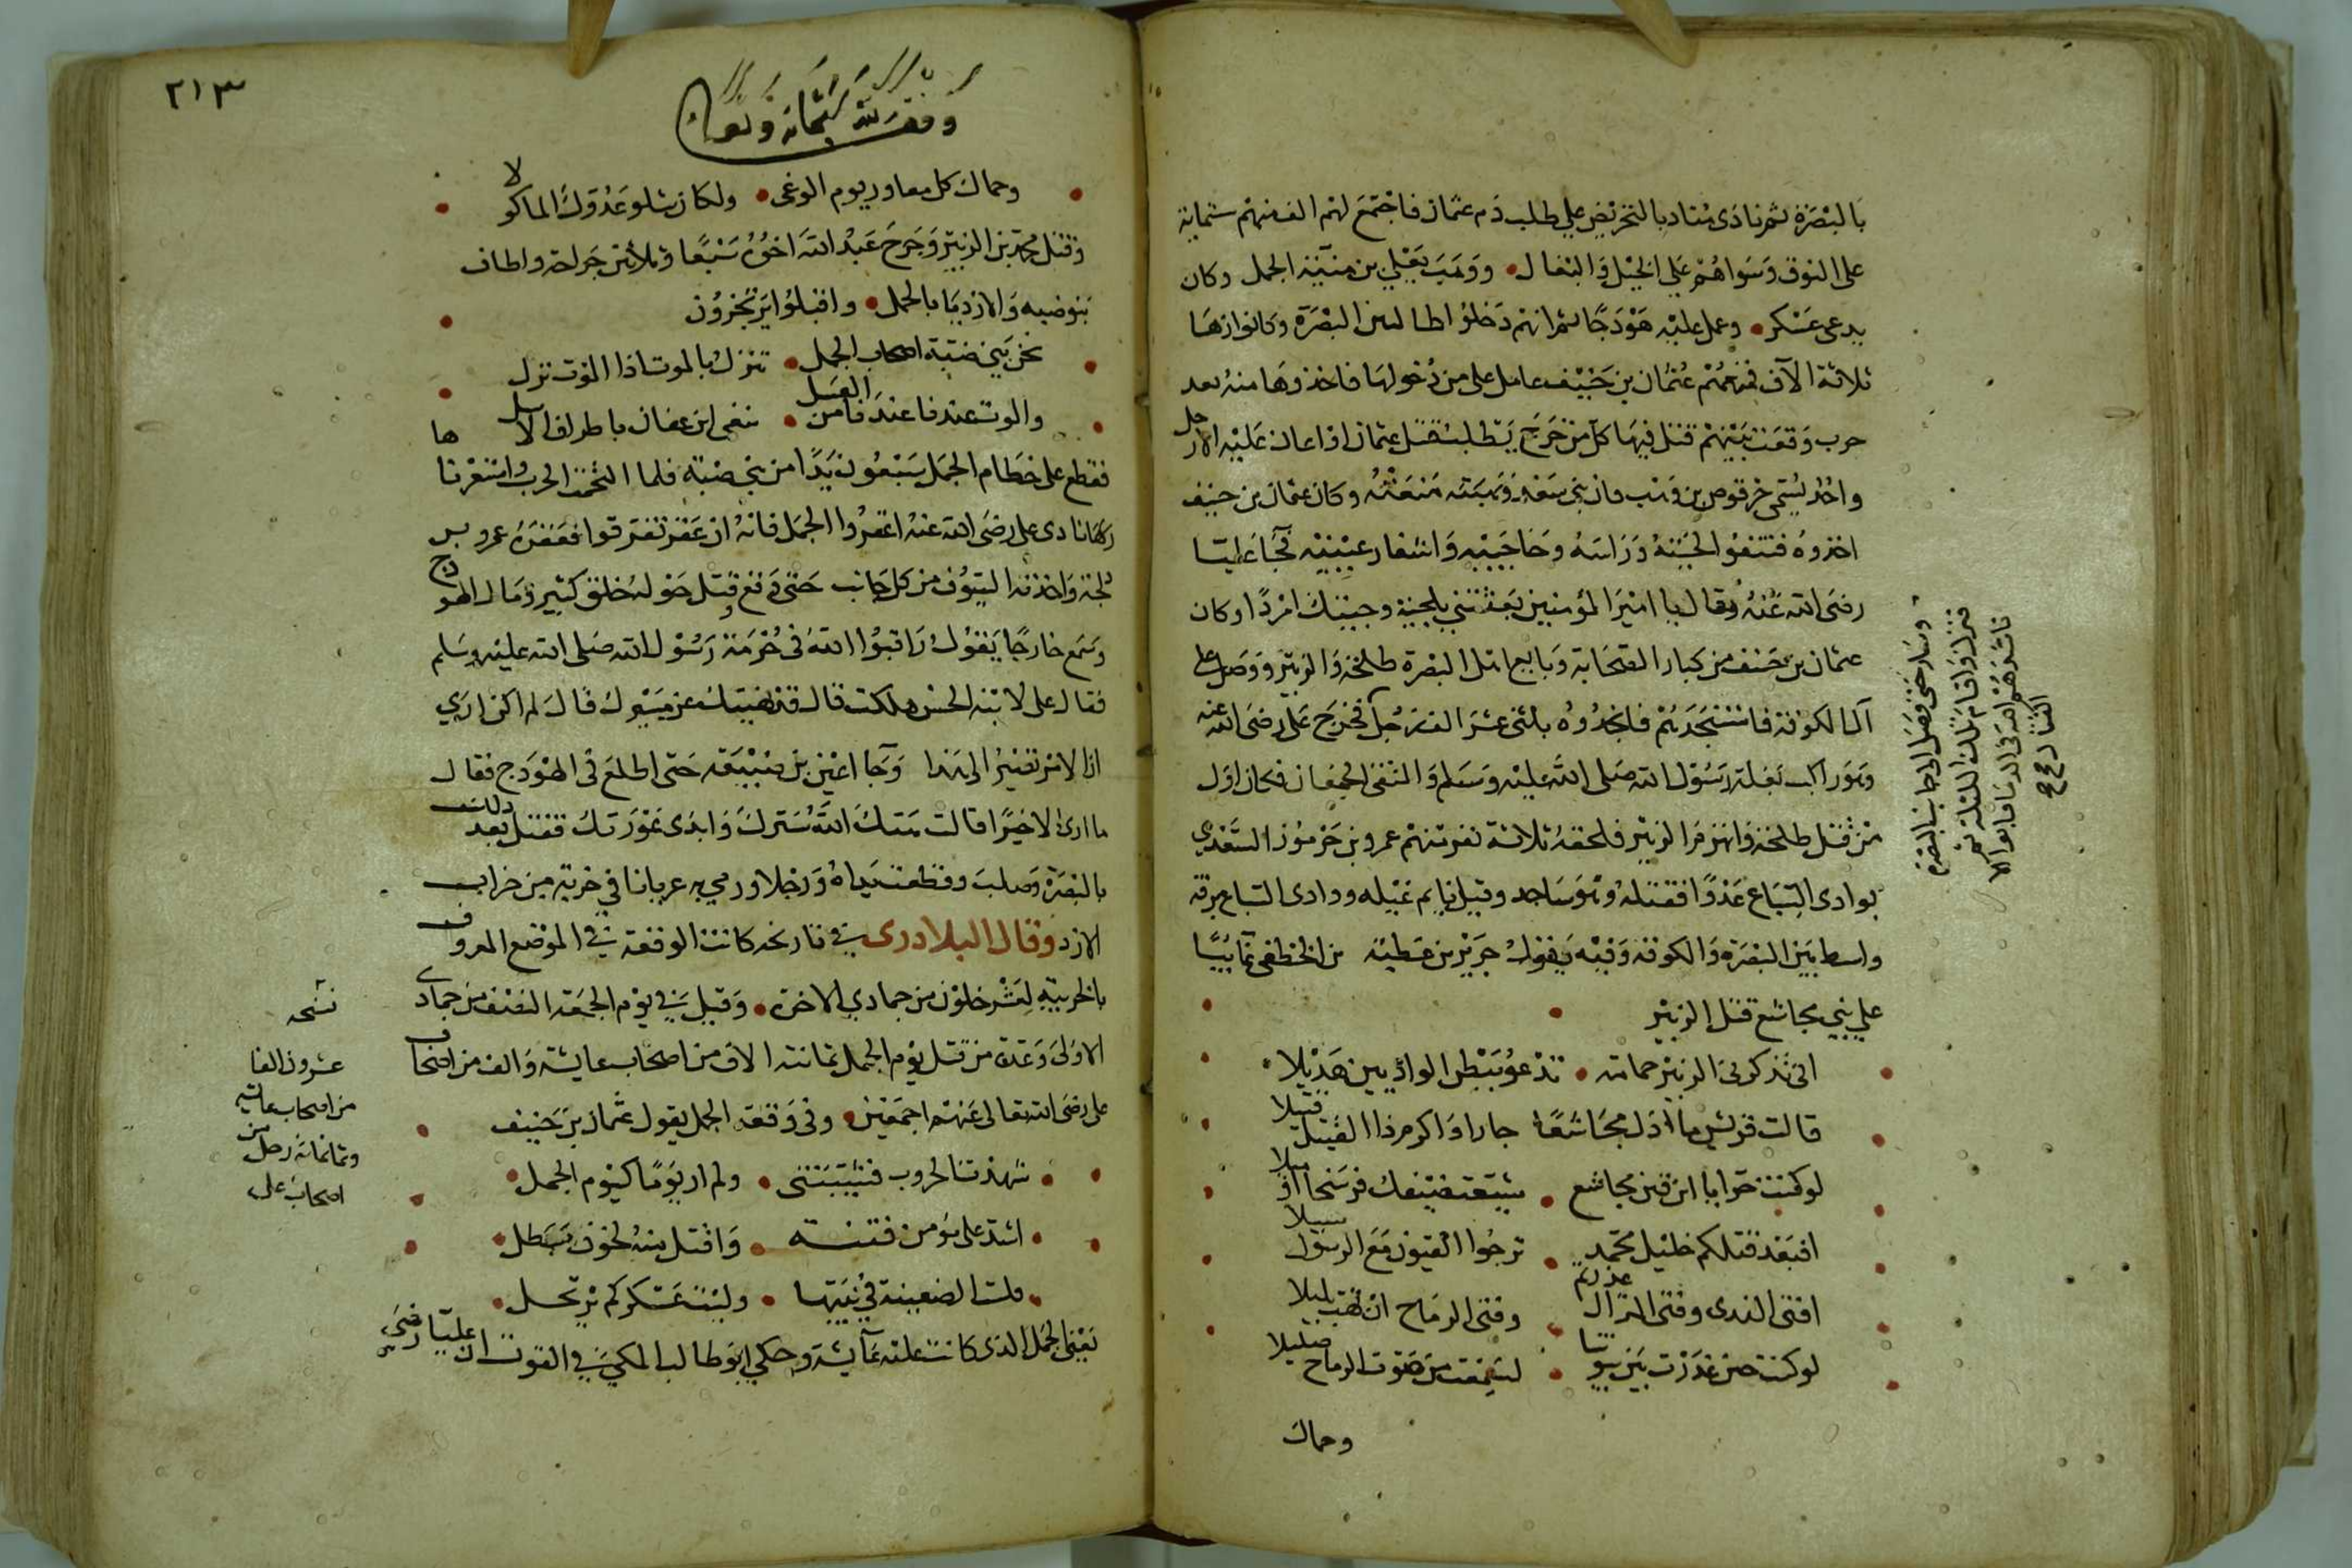 بالبصرة ثم نادى مناد بالتحريض علي طلب دم عثمان فاجتمع لهم الف منهم ستماية
على النوق وسواهم علي الخيل والبغال ووهب يعلي بن منيّة الجمل وكان
يدعى عسكر وعمل عليه هودجًا ثم انهم دخلوا البصرة وكانوا زها
ثلاثة الاف فمنعهم عثمان بن حنيف عامل على من دخولها فاخذوها منه بعد
حرب وقعت بينهم قتل فيها كل من خرج يطلب بقتل عثمان او اعان عليه الا رجل
واحد يسمى حرقوص بن فان بني سعد وتميمته منعته وكان عثمان بن حنيف
اخذوه فنتفوا لحيته وراسه وحاجبيه واشفار عينيه فجا عليا
رضى الله عنه وقال يا امير المؤمنين بعثتني بلحية وجيتك امردًا وكان
عثمان بن حنيف من كبار الصحابة وبايع اهل البصرة طلحة والزبير ووصل على
الى الكوفة فاستنجدهم فانجدوه باثنى عشر الف رجل فخرج على رضى الله عنه
وهو راكب بغلة رسول الله صلى الله عليه وسلم والتقى الجمعان فكان اول
من قتل طلحة وانهزم الزبير فلحقه ثلاثة نفر منهم عمرو بن جرموز السعدي
بوادى السباع غدوًا فقتله وهو ساجد وقيل نايم غيله ووادى السباع برقة
واسط بين البصرة والكوفة وفيه يقول جرير بن عطية بن الخطفى عايبًا
علي بني مجاشع قتل الزبير
انى تذكرنى الزبير حمامة تدعو ببطن الواديين هديلا
قالت قريش ما اذل مجاشعًا جارا واكرم ذا القتيل قتيلا
لو كنت حرا يا ابن قين مجاشع شيعت ضيفك فرسخا او ميلا
افبعد قتلكم خليل محمد ترجوا القيون مع الرسول سبيلا
افتى الندى وفتى الطعان غررتم وفتى الرماح اذا تهب بليلا
لو كنت حين غدرت بين بيوتنا لسمعت من صوت الرماح صليلا
وحماك
وسار حتى وصل الى جانب البصرة
فنزل واقام تلك الليلة ثم
ناشدهم الله فى الدما فابوا الا
القتال صح
٢١٣
وقف لله سبحانه وتعالى
وحماك كل معاود يوم الوغى ولكان شلو عدوك الماكولا
وقتل محمد بن الزبير وجرح عبد الله اخوه سبعًا وثلاثين جراحة واطاف
بنو ضبه والازد بالجمل واقبلوا يرتجزون
نحن بني ضبة اصحاب الجمل ننزل بالموت اذا الموت نزل
والموت عندنا من العسل ننعى ابن عفان باطراف الاسل
فقطع على خطام الجمل سبعون يدًا من بني ضبة فلما التحمت الحرب واستعرت نارها
نادى على رضى الله عنه اعقروا الجمل فانه ان عقر تفرقوا فعقره عمرو بن
دلجة واخذته السيوف من كل جانب حتى وقع وقتل حوله خلق كثير ومال الهودج
وسمع خارجًا يقول راقبوا الله في حرمة رسول الله صلى الله عليه وسلم
فقال على لابنه الحسن هلكت قال قد نهيتك عن مسيرك قال لم اكن ارى
ان الامر يصير الى هذا وجا اعين بن ضبيعة حتى اطلع فى الهودج فقال
ما ارى الا خيرًا قالت هتك الله سترك وابدى عورتك فقتل بعد ذلك
بالبصرة وصلب وقطعت يداه ورجلاه ورمي به عريانا في خربة من خراب
الازد وقال البلادرى في تاريخه كانت الوقعة في الموضع المعروف
بالخريبه لعشر خلون من جمادي الاخرة وقيل في يوم الجمعة النصف من جمادى
الاولى وعدة من قتل يوم الجمل ثمانية الاف من اصحاب عايشة والف من اصحاب
على رضى الله تعالى عنهم اجمعين وفى وقعة الجمل يقول عثمان بن حنيف
شهدت الحروب فشيبتنى ولم ار يومًا كيوم الجمل
اشد على مؤمن فتنة واقتل منه لخوف بطل
فليت الضعينة في بيتها وليت عسكركم يرتحل
يعني الجمل الذى كانت عليه عايشة وحكى ابو طالب المكي في القوت ان عليا رضى
نسخه
عشرون الفا
من اصحاب عايشه
وثمانمائة رجل من
اصحاب على